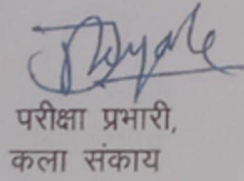 परीक्षा प्रभारी,
कला संकाय